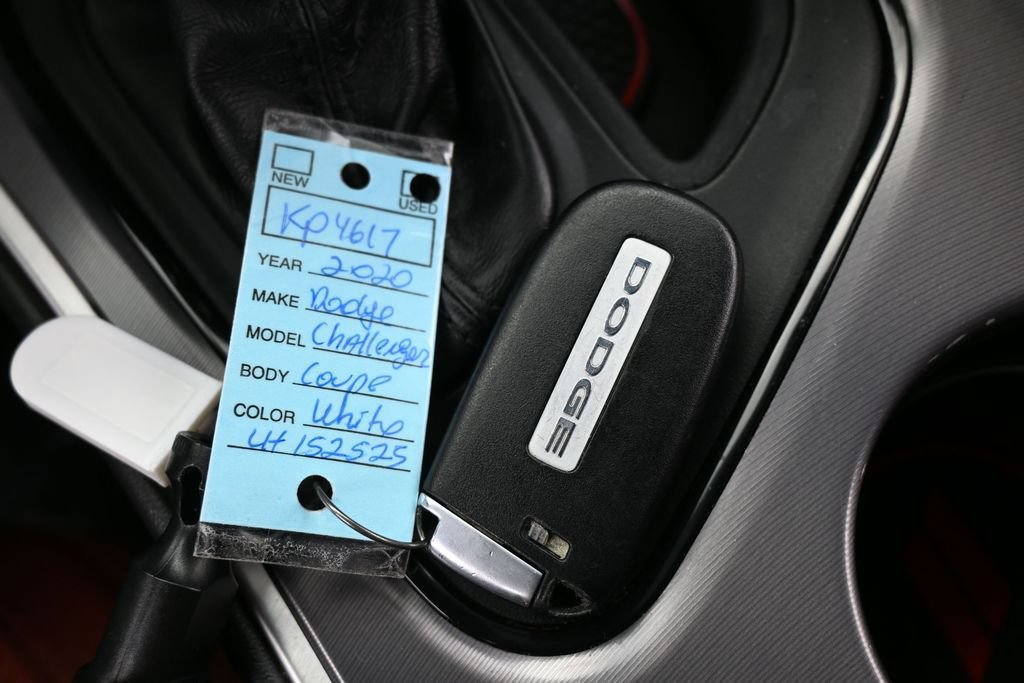 NEW
USED
KP4617
YEAR 2020
MAKE Dodge
MODEL Challenger
BODY Coupe
COLOR White
LH152525
DODGE